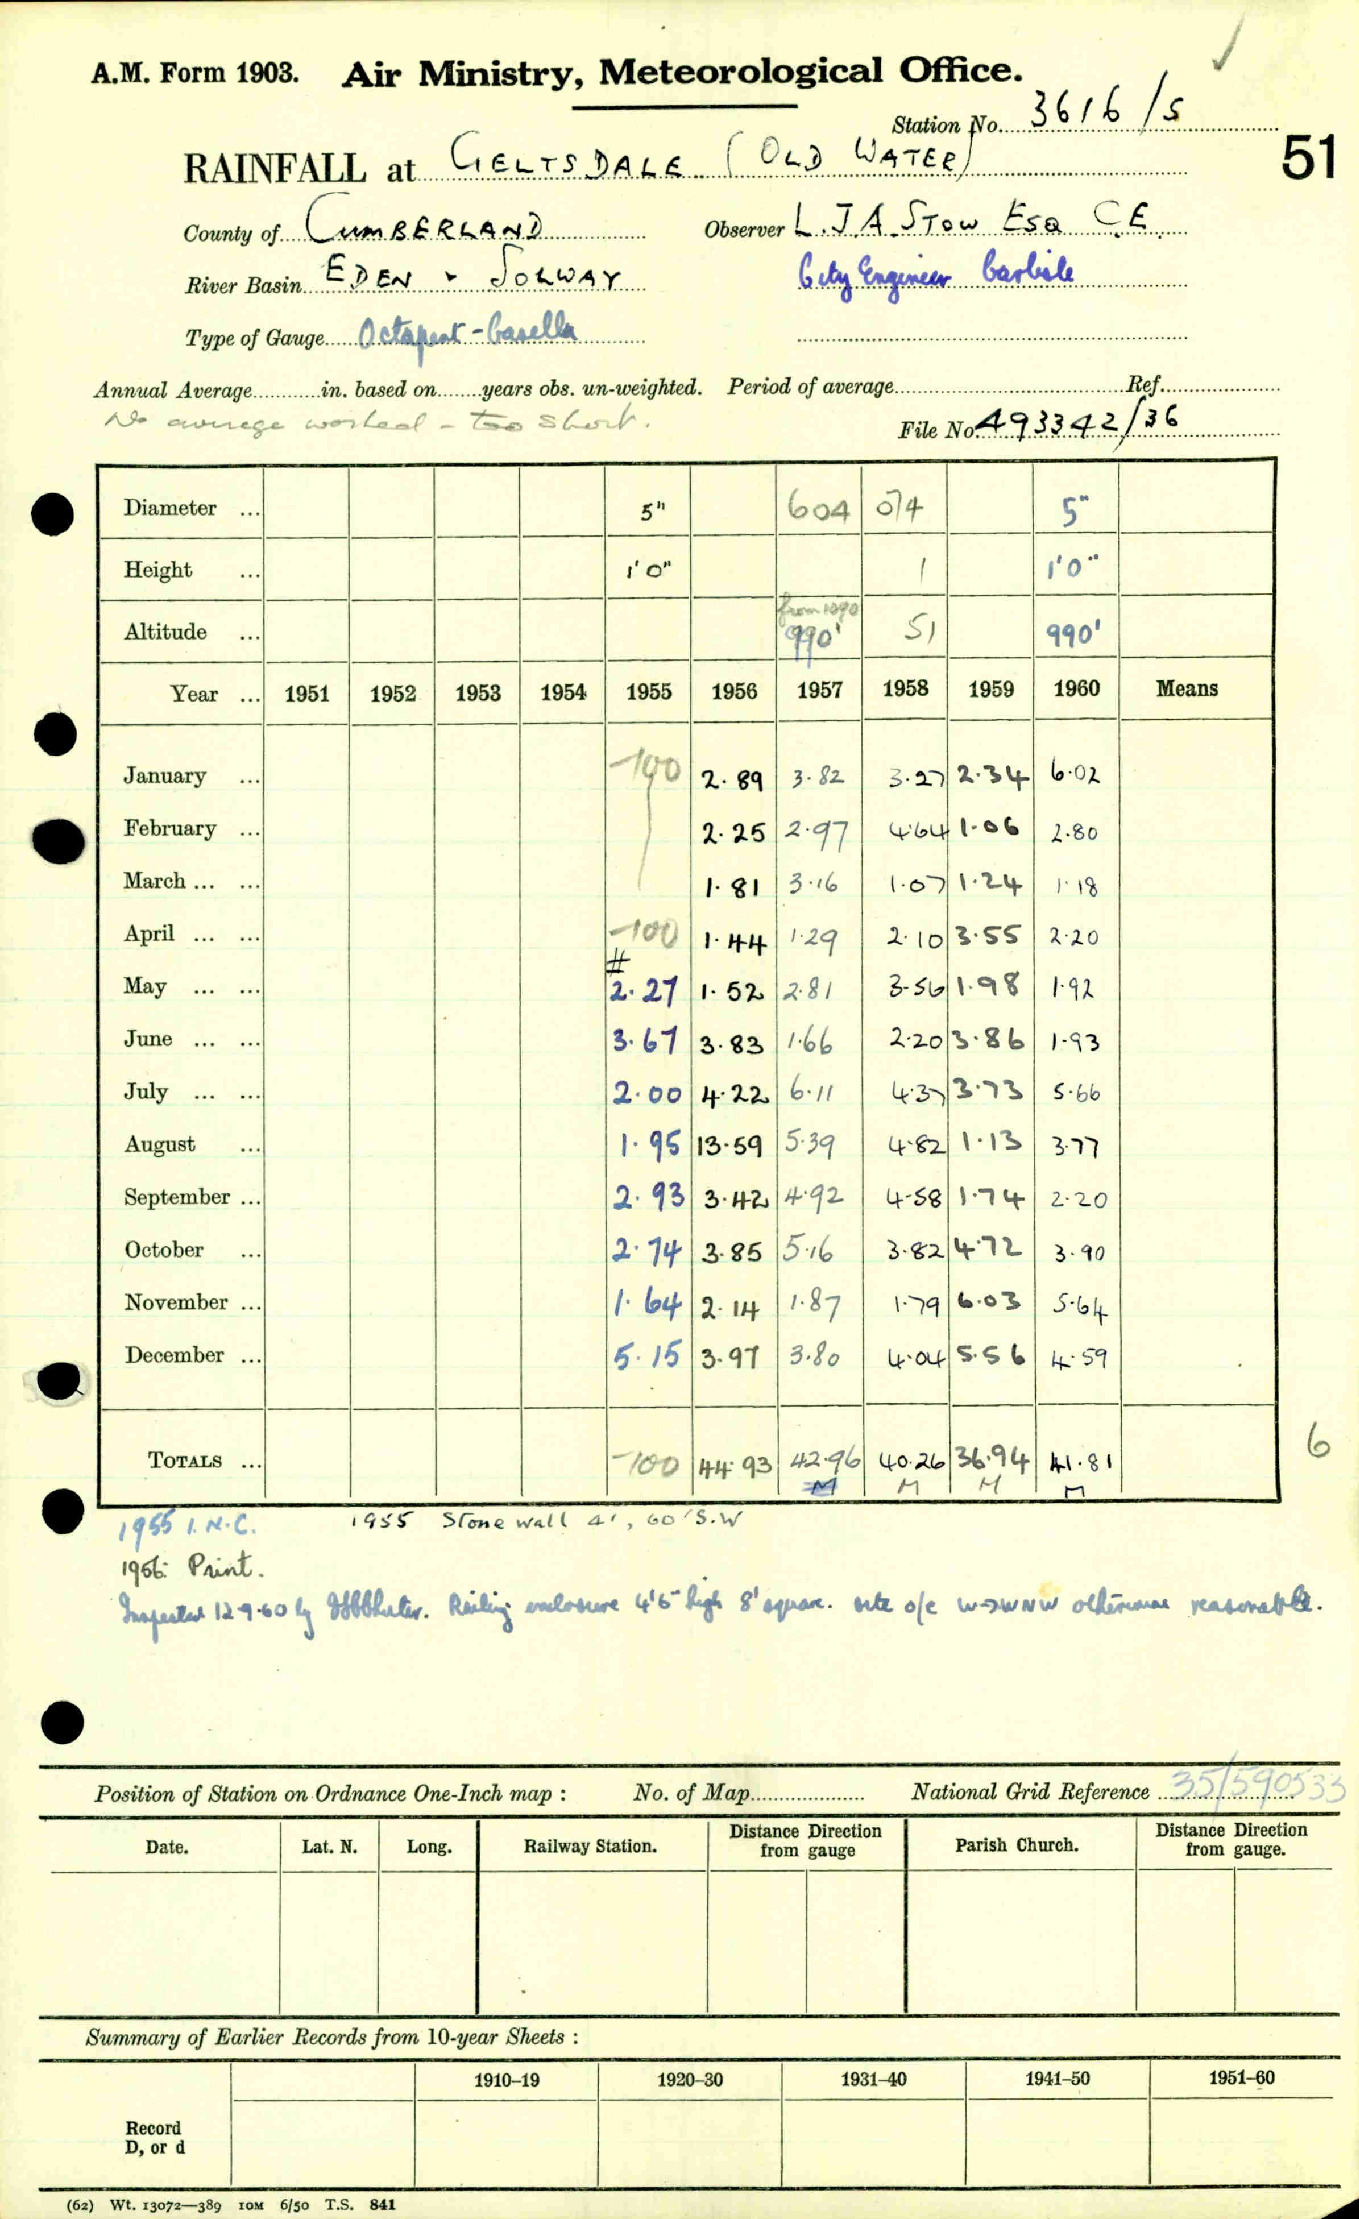 A.M. Form 1903. Air Ministry, Meteorological Office.
Station No. 3616/5
RAINFALL at GELTSDALE (OLD WATER)
51
County of CUMBERLAND Observer L.J.A. STOW ESQ C.E.
River Basin EDEN & SOLWAY City Engineer Carlisle
Type of Gauge Octapent - Casella
Annual Average in. based on years obs. un-weighted. Period of average Ref.
No average worked - too short.
File No. 493342/36
Diameter ... 5" 604 074 5"
Height ... 1'0" 1 1'0"
Altitude ... from 1090 990' 51 990'
Year ... 1951 1952 1953 1954 1955 1956 1957 1958 1959 1960 Means
January ... -100 2.89 3.82 3.27 2.34 6.02
February ... 2.25 2.97 4.64 1.06 2.80
March ... ... 1.81 3.16 1.07 1.24 1.18
April ... ... -100 1.44 1.29 2.10 3.55 2.20
#
May ... ... 2.27 1.52 2.81 3.56 1.98 1.92
June ... ... 3.67 3.83 1.66 2.20 3.86 1.93
July ... ... 2.00 4.22 6.11 4.37 3.73 5.66
August ... 1.95 13.59 5.39 4.82 1.13 3.77
September ... 2.93 3.42 4.92 4.58 1.74 2.20
October ... 2.74 3.85 5.16 3.82 4.72 3.90
November ... 1.64 2.14 1.87 1.79 6.03 5.64
December ... 5.15 3.97 3.80 4.04 5.56 4.59
TOTALS ... -100 44.93 42.96 40.26 36.94 41.81
M M M M
6
1955 I.N.C. 1955 Stone wall 4', 60' S.W
1956: Print.
Inspected 12.9.60 by Railing enclosure 4'6" high 8' square. site o/e W→WNW otherwise reasonable.
Position of Station on Ordnance One-Inch map : No. of Map National Grid Reference 35/590533
Date. Lat. N. Long. Railway Station. Distance from gauge Direction Parish Church. Distance Direction from gauge.
Summary of Earlier Records from 10-year Sheets :
1910–19 1920–30 1931–40 1941–50 1951–60
Record
D, or d
(62) Wt. 13072—389 10M 6/50 T.S. 841